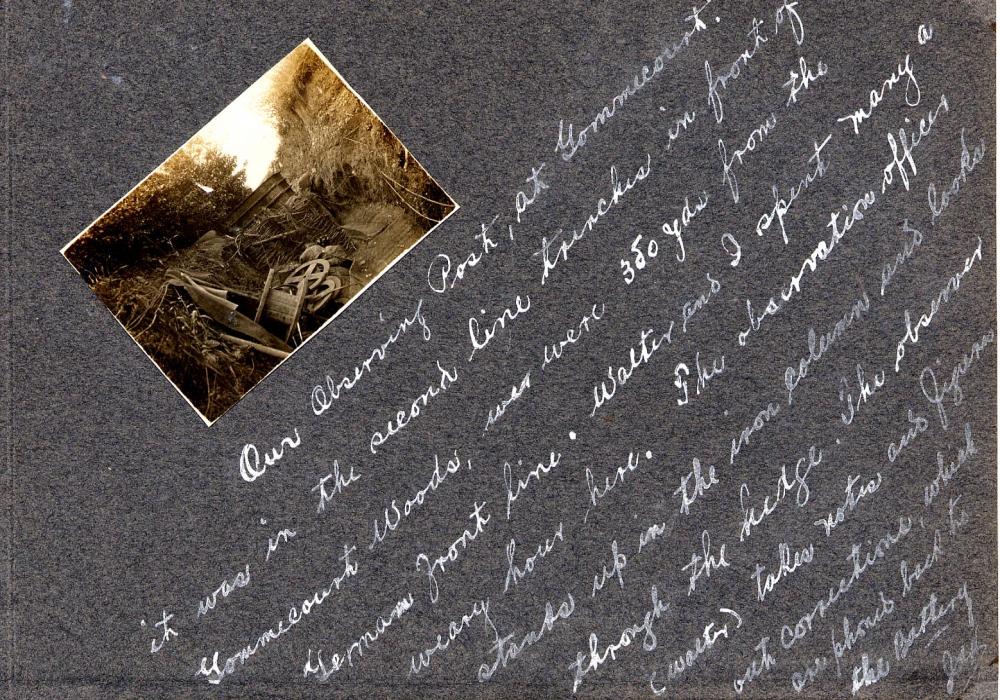 Our Observing Post, at Gommecourt.
it was in the second line trenches in front of
Gommecourt Woods, we were 350 yds from the
German Front line. Walter and I spent many a
weary hour here. The observation officer
stands up in the iron column and looks
through the hedge. The observer
(walter) takes notes and figures
out corrections, which
are phoned back to
the Battery